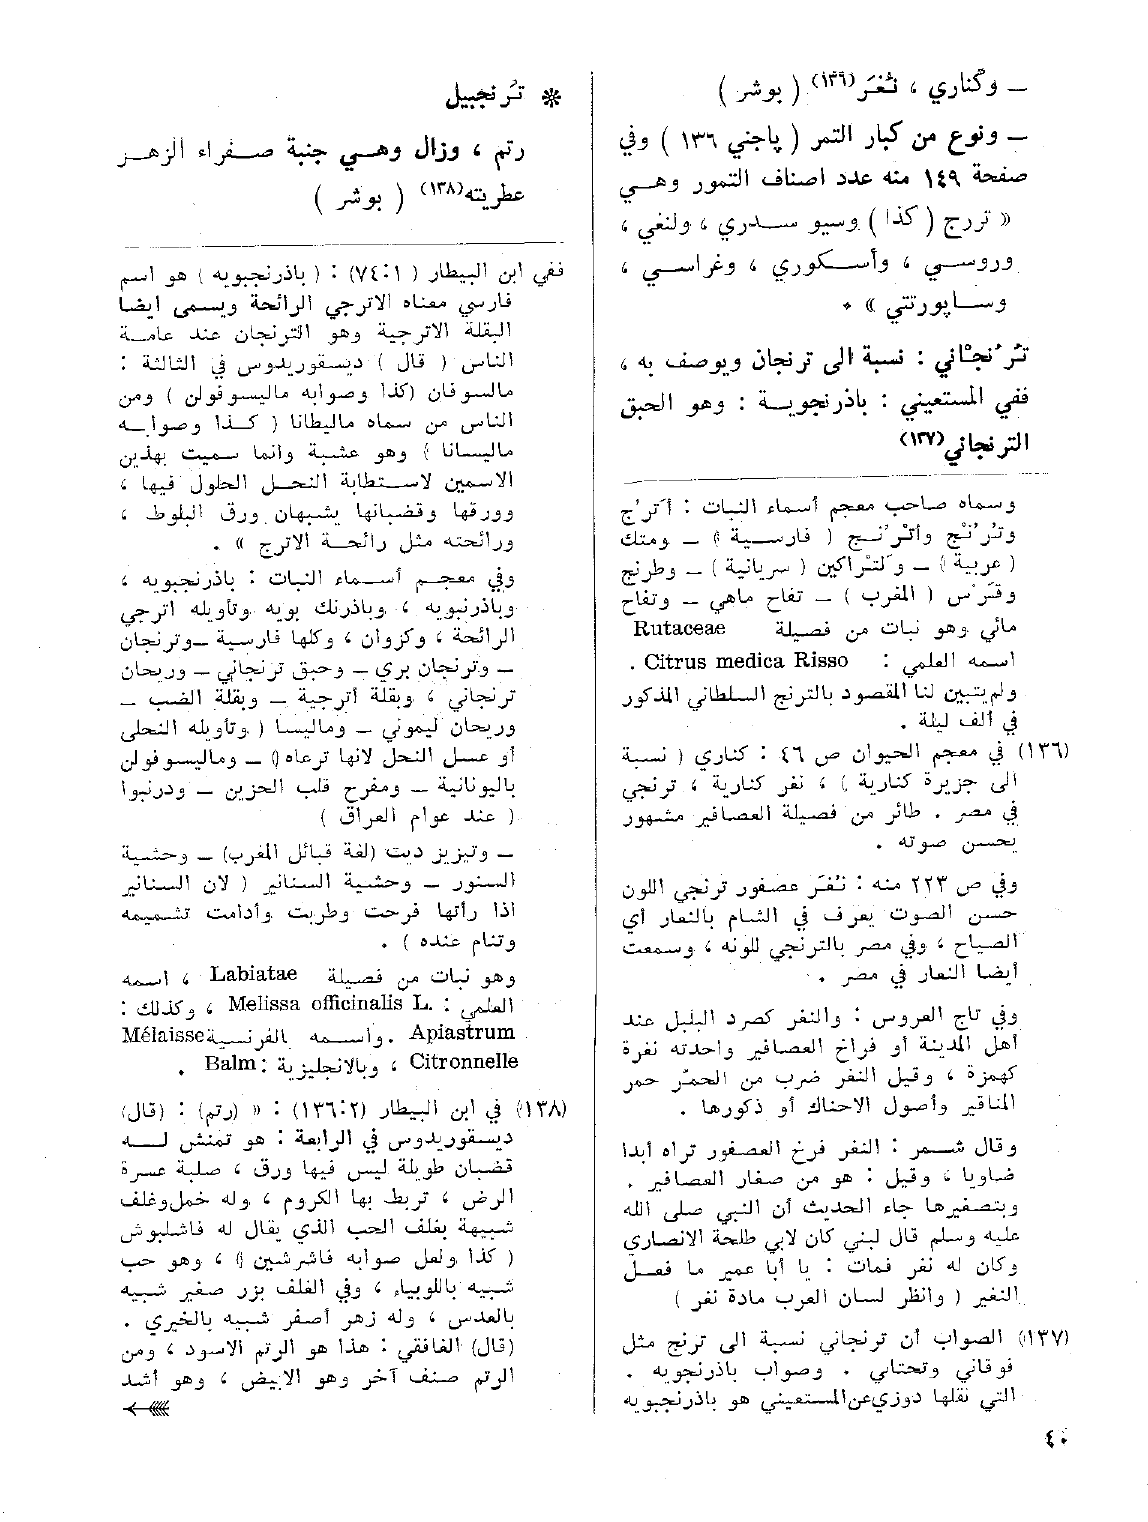 — وكناري ، نُغَر(١٣٦) ( بوشر )
— ونوع من كبار التمر ( پاجني ١٣٦ ) وفي
صفحة ١٤٩ منه عدد اصناف التمور وهي
« تررج ( كذا ) وسيو سدري ، ولنغي ،
وروسي ، وأسكوري ، وغراسي ،
وساپورتتي » ٠
تُرُنْجاني : نسبة الى ترنجان ويوصف به ،
ففي المستعيني : باذرنجوية : وهو الحبق
الترنجاني(١٣٧)
وسماه صاحب معجم أسماء النبات : أترج
وتُرُنْج وأتْرُنج ( فارسية ) — ومتك
( عربية ) — ولتراكين ( سريانية ) — وطرنج
وقرس ( المغرب ) — تفاح ماهي — وتفاح
مائي وهو نبات من فصيلة Rutaceae
اسمه العلمي : Citrus medica Risso .
ولم يتبين لنا المقصود بالترنج السلطاني المذكور
في ألف ليلة .
(١٣٦) في معجم الحيوان ص ٤٦ : كناري ( نسبة
الى جزيرة كنارية ) ، نغر كنارية ، ترنجي
في مصر . طائر من فصيلة العصافير مشهور
بحسن صوته .
وفي ص ٢٢٣ منه : نُغَر عصفور ترنجي اللون
حسن الصوت يعرف في الشام بالنعار أي
الصياح ، وفي مصر بالترنجي للونه ، وسمعت
أيضا النعار في مصر .
وفي تاج العروس : والنغر كصرد البلبل عند
أهل المدينة أو فراخ العصافير واحدته نغرة
كهمزة ، وقيل النغر ضرب من الحمّر حمر
المناقير وأصول الاحناك أو ذكورها .
وقال شمر : النغر فرخ العصفور تراه أبدا
ضاويا ، وقيل : هو من صغار العصافير .
وبتصغيرها جاء الحديث أن النبي صلى الله
عليه وسلم قال لبني كان لابي طلحة الانصاري
وكان له نغر فمات : يا أبا عمير ما فعل
النغير ( وانظر لسان العرب مادة نغر )
(١٣٧) الصواب أن ترنجاني نسبة الى ترنج مثل
فوقاني وتحتاني . وصواب باذرنجويه .
التي نقلها دوزي عن المستعيني هو باذرنجبويه
※ تُرنجبيل
رتم ، وزال وهي جنبة صفراء الزهر
عطريته(١٣٨) ( بوشر )
ففي ابن البيطار ( ١:٧٤) : ( باذرنجبويه ) هو اسم
فارسي معناه الاترجي الرائحة ويسمى ايضا
البقلة الاترجية وهو الترنجان عند عامة
الناس ( قال ) ديسقوريدوس في الثالثة :
مالسوفان (كذا وصوابه ماليسوفولن ) ومن
الناس من سماه ماليطانا ( كذا وصوابه
ماليسانا ) وهو عشبة وانما سميت بهذين
الاسمين لاستطابة النحل الحلول فيها ،
وورقها وقضبانها يشبهان ورق البلوط ،
ورائحته مثل رائحة الاترج » .
وفي معجم أسماء النبات : باذرنجبويه ،
وباذرنبويه ، وباذرنك بويه وتأويله أترجي
الرائحة ، وكزوان ، وكلها فارسية — وترنجان
— وترنجان بري — وحبق ترنجاني — وريحان
ترنجاني ، وبقلة أترجية — وبقلة الضب —
وريحان ليموني — وماليسا ( وتأويله النحلى
أو عسل النحل لانها ترعاه ) — وماليسوفولن
باليونانية — ومفرح قلب الحزين — ودرنبوا
( عند عوام العراق )
— وتيزيز ديت (لغة قبائل المغرب) — وحشية
السنور — وحشية السنانير ( لان السنانير
اذا رأتها فرحت وطربت وأدامت تشميمه
وتنام عنده ) .
وهو نبات من فصيلة Labiatae ، اسمه
العلمي : Melissa officinalis L. ، وكذلك :
Apiastrum . واسمه بالفرنسية Mélaisse
Citronnelle ، وبالانجليزية : Balm .
(١٣٨) في ابن البيطار (١٣٦:٢) : « (رتم) : (قال)
ديسقوريدوس في الرابعة : هو تمنش له
قضبان طويلة ليس فيها ورق ، صلبة عسرة
الرض ، تربط بها الكروم ، وله خمل وغلف
شبيهة بغلف الحب الذي يقال له فاشلبوش
( كذا ولعل صوابه فاشرشين ) ، وهو حب
شبيه باللوبياء ، وفي الغلف بزر صغير شبيه
بالعدس ، وله زهر أصفر شبيه بالخيري .
(قال) الغافقي : هذا هو الرتم الاسود ، ومن
الرتم صنف آخر وهو الابيض ، وهو أشد
٤٠